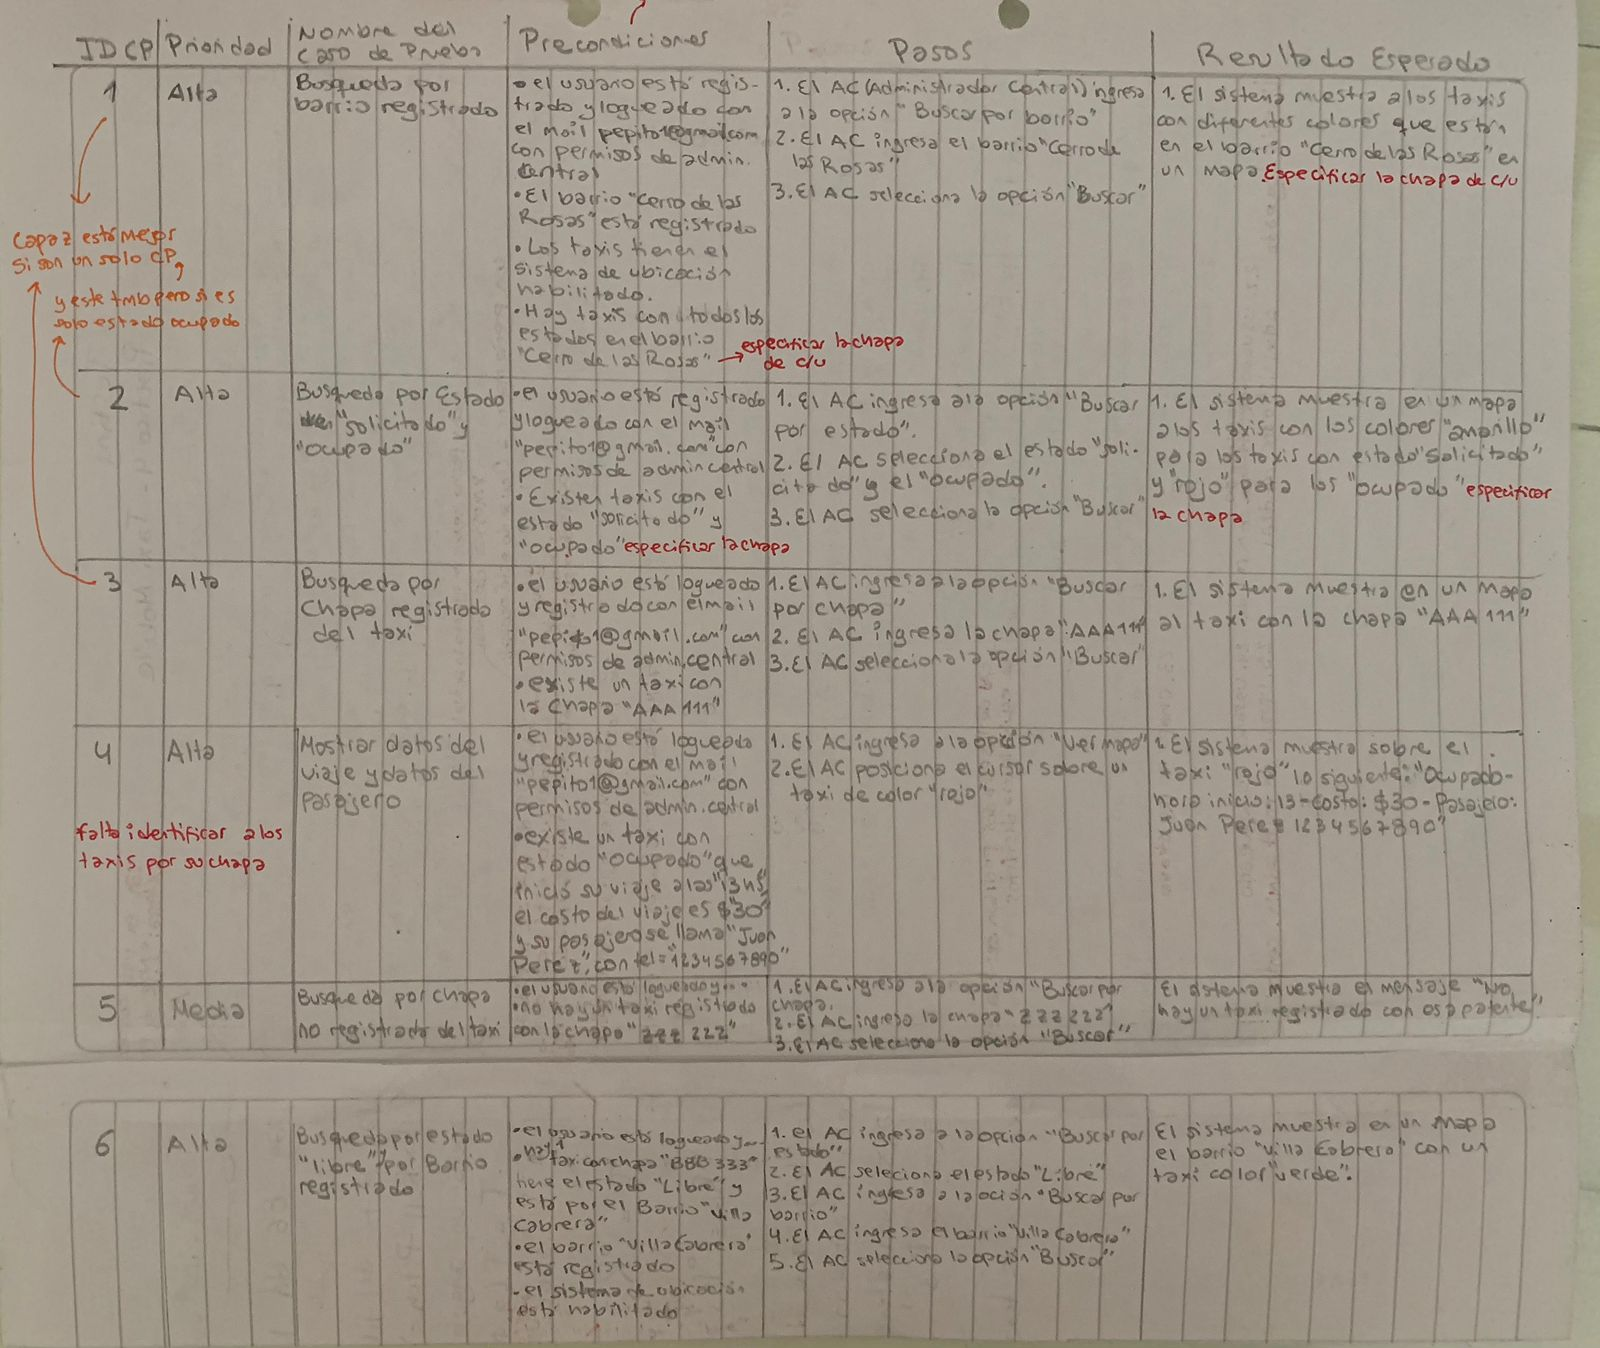 ID CP
Prioridad
Nombre del
Caso de Prueba
Precondiciones
Pasos
Resultado Esperado
1
Alta
Busqueda por
barrio registrado
• el usuario está regis-
trado y logueado con
el mail pepito1@gmail.com
con permisos de admin.
central
• El barrio "Cerro de las
Rosas" está registrado
• Los taxis tienen el
sistema de ubicación
habilitado.
• Hay taxis con todos los
estados en el barrio
"Cerro de las Rosas" → especificar la chapa
de c/u
1. El AC (Administrador Central) ingresa
a la opción "Buscar por barrio"
2. El AC ingresa el barrio "Cerro de
las Rosas"
3. El AC selecciona la opción "Buscar"
1. El sistema muestra a los taxis
con diferentes colores que están
en el barrio "Cerro de las Rosas" en
un mapa. Especificar la chapa de c/u
capaz está mejor
si son un solo CP,
y este tmb pero si es
solo estado ocupado
2
Alta
Busqueda por Estado
"solicitado" y
"ocupado"
• el usuario está registrado
y logueado con el mail
"pepito1@gmail.com" con
permisos de admin central
• Existen taxis con el
estado "solicitado" y
"ocupado" especificar la chapa
1. El AC ingresa a la opción "Buscar
por estado".
2. El AC selecciona el estado "soli-
citado" y el "ocupado".
3. El AC selecciona la opción "Buscar"
1. El sistema muestra en un mapa
a los taxis con los colores "amarillo"
para los taxis con estado "solicitado"
y "rojo" para los "ocupado" especificar
la chapa
3
Alta
Busqueda por
Chapa registrada
del taxi
• el usuario está logueado
y registrado con el mail
"pepito1@gmail.com" con
permisos de admin.central
• existe un taxi con
la Chapa "AAA 111"
1. El AC ingresa a la opción "Buscar
por chapa"
2. El AC ingresa la chapa "AAA 111"
3. El AC selecciona la opción "Buscar"
1. El sistema muestra en un mapa
al taxi con la chapa "AAA 111"
4
Alta
Mostrar datos del
viaje y datos del
pasajero
falta identificar a los
taxis por su chapa
• el usuario está logueado
y registrado con el mail
"pepito1@gmail.com" con
permisos de admin.central
• existe un taxi con
estado "Ocupado" que
inició su viaje a las "13hs",
el costo del viaje es "$30"
y su pasajero se llama "Juan
Perez", con tel="1234567890"
1. El AC ingresa a la opción "Ver mapa"
2. El AC posiciona el cursor sobre un
taxi de color "rojo"
1. El sistema muestra sobre el
taxi "rojo" lo siguiente: "Ocupado-
hora inicio: 13-costo: $30-Pasajero:
Juan Perez 1234567890"
5
Media
Busqueda por chapa
no registrada del taxi
• el usuario está logueado y...
• no hay un taxi registrado
con la chapa "ZZZ 222"
1. El AC ingresa a la opción "Buscar por
chapa.
2. El AC ingresa la chapa "ZZZ 222"
3. El AC selecciona la opción "Buscar"
El sistema muestra el mensaje "No
hay un taxi registrado con esa patente".
6
Alta
Busqueda por estado
"libre" y por Barrio
registrado
• el usuario está logueado y...
• hay 1 taxi con chapa "BBB 333"
tiene el estado "Libre" y
está por el Barrio "Villa
Cabrera"
• el barrio "Villa Cabrera"
está registrado
• el sistema de ubicación
está habilitado
1. el AC ingresa a la opción "Buscar por
estado"
2. El AC seleciona el estado "Libre"
3. El AC ingresa a la oción "Buscar por
barrio"
4. El AC ingresa el barrio "Villa Cabrera"
5. El AC selecciona la opción "Buscar"
El sistema muestra en un mapa
el barrio "Villa Cabrera" con un
taxi color "verde".